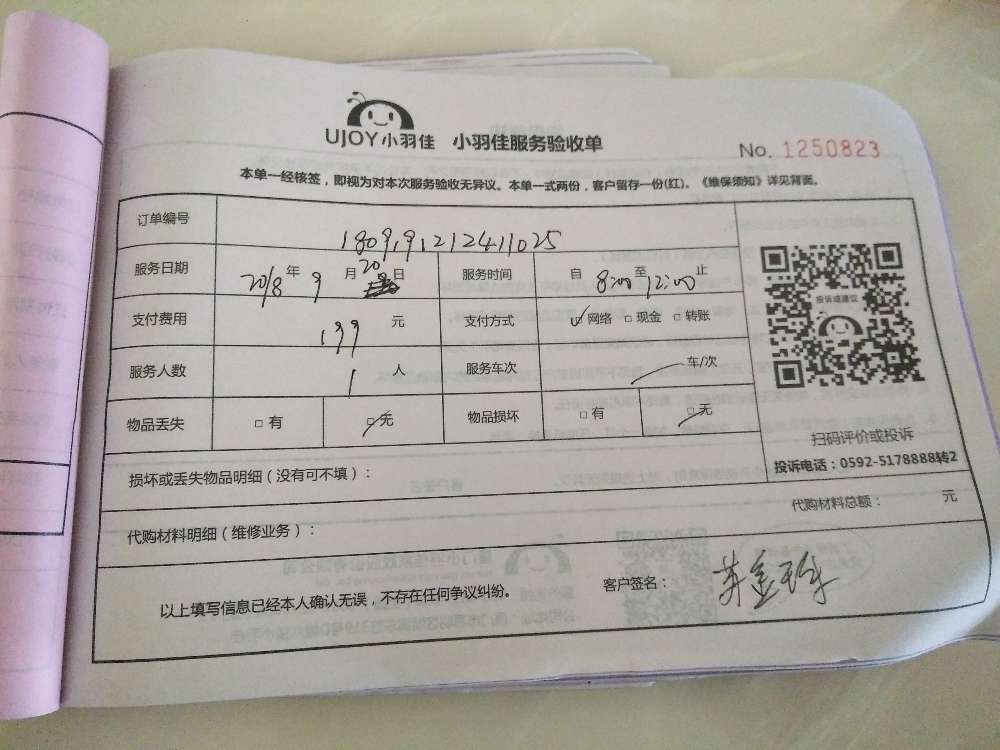 UJOY小羽佳 小羽佳服务验收单
No. 1250823
本单一经核签，即视为对本次服务验收无异议。本单一式两份，客户留存一份(红)。《维保须知》详见背面。
订单编号 1809191212411025
服务日期 2018年 9月 20日 服务时间 自 8:00 至 12:00 止
支付费用 199 元 支付方式 ☑网络 □现金 □转账
服务人数 1 人 服务车次 / 车/次
物品丢失 □有 ☑无 物品损坏 □有 ☑无
投诉或建议
扫码评价或投诉
投诉电话：0592-5178888转2
损坏或丢失物品明细（没有可不填）：
代购材料明细（维修业务）： 代购材料总额： 元
以上填写信息已经本人确认无误，不存在任何争议纠纷。 客户签名：